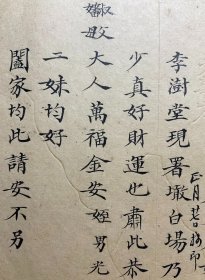 李澍堂現署墩白場乃
正月廿七日接印
少真好財運也肅此恭
嬸母
大人萬福金安姪男光
二妹均好
闔家均此請安不另